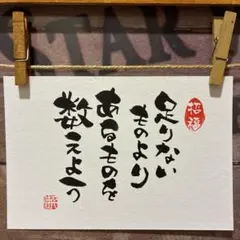 足りない
ものより
あるものを
数えよう
招福
STAR